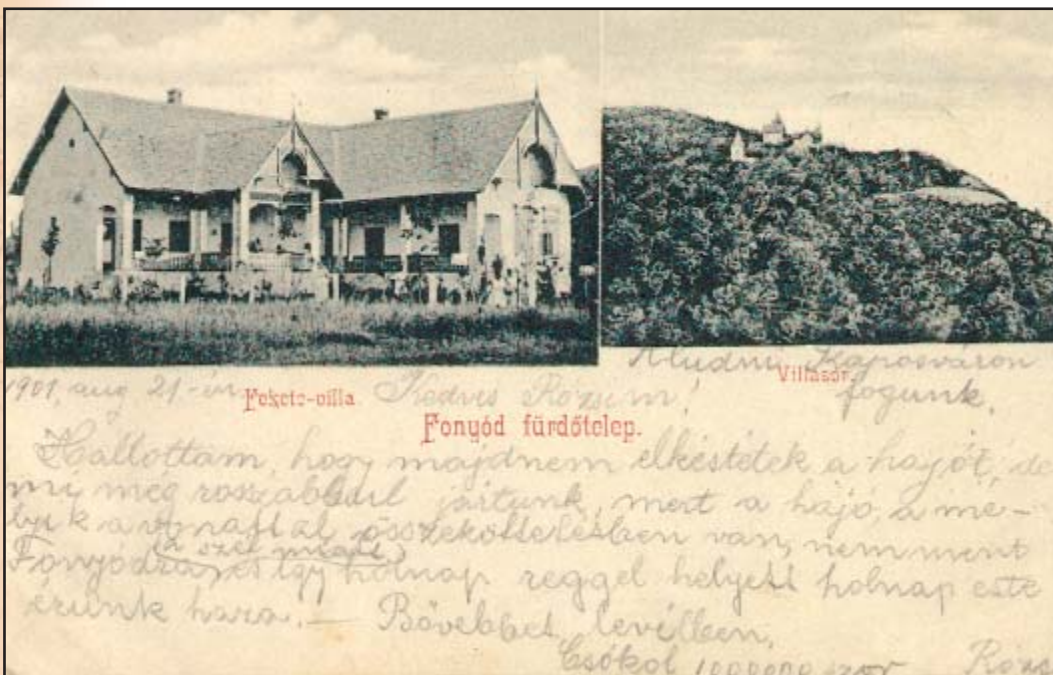 Aludni Kaposváron
Villasor.
fogunk,
1901, aug 21-én
Fekete-villa
Kedves Rózsim!
Fonyód fürdőtelep.
Hallottam, hogy majdnem elkéstétek a hajót, de
mi még roszabbul jártunk, mert a hajó, a me-
lyik a vonattal összeköttetésben van, nem ment
(a szél miatt)
Fonyódra, és így holnap reggel helyett holnap este
érünk haza. — Bővebbet levélben,
Csókol 1000000 szor